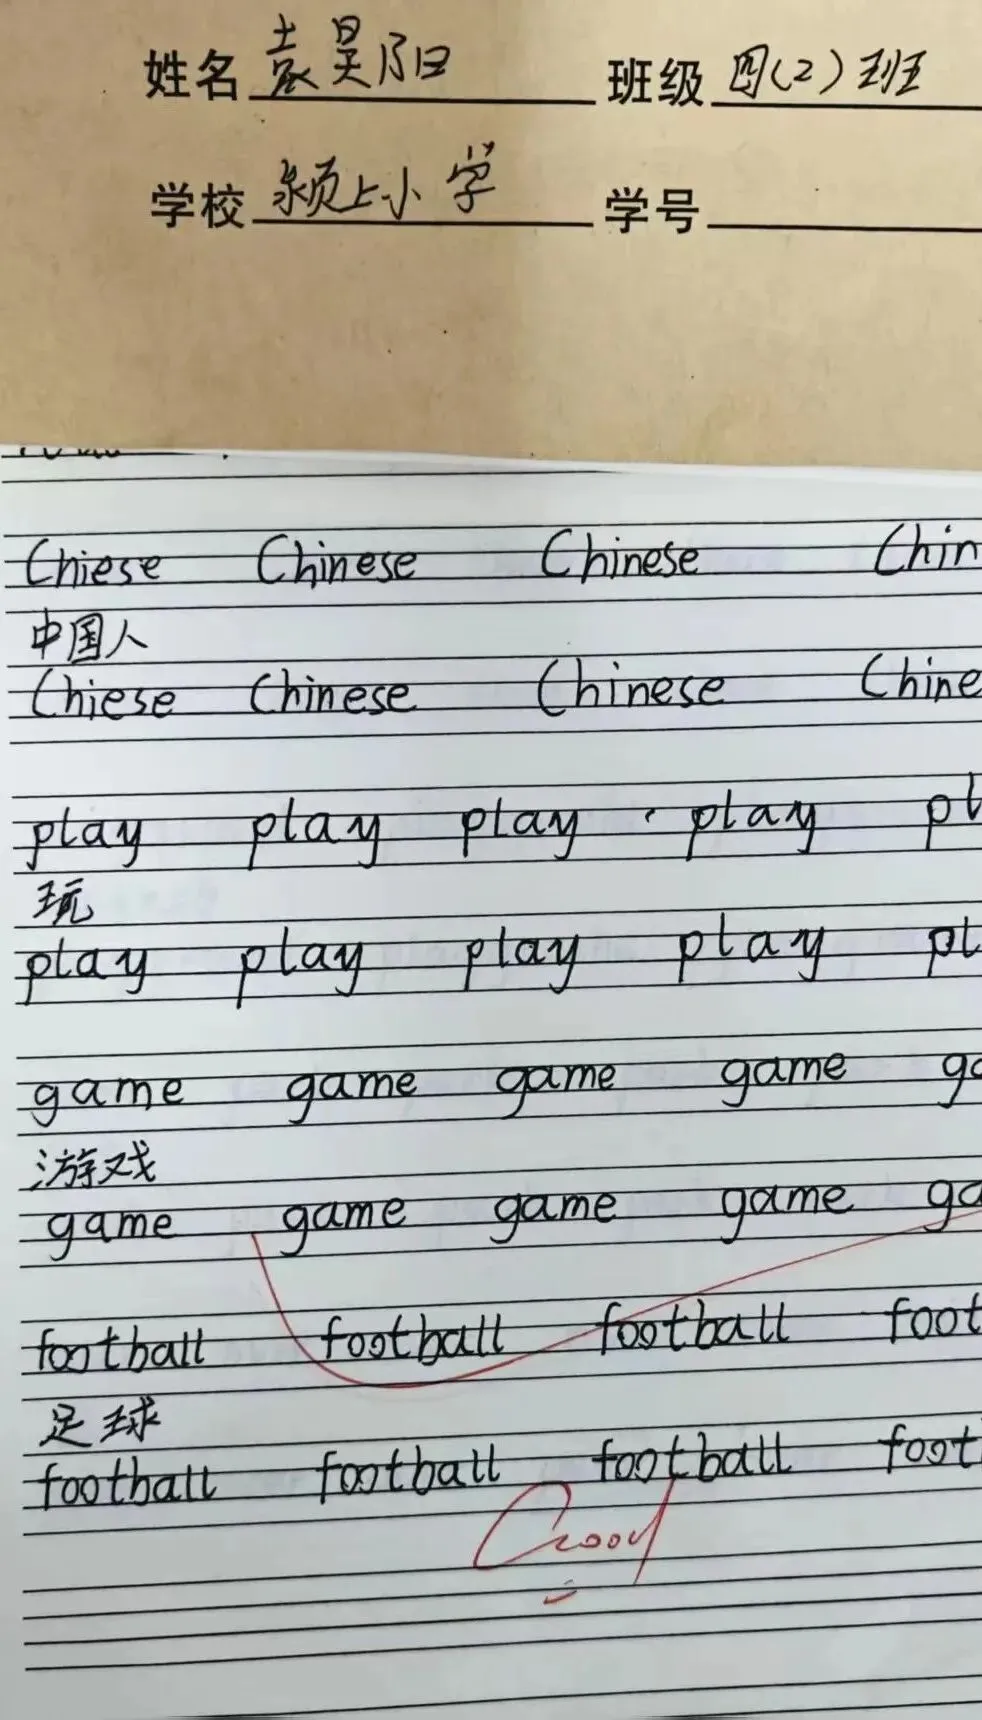 姓名 袁昊阳 班级 四(2)班
学校 颍上小学 学号
Chiese Chinese Chinese Chin
中国人
Chiese Chinese Chinese Chine
play play play play pl
玩
play play play play pl
game game game game ga
游戏
game game game game ga
football football football foot
足球
football football football foot
Good